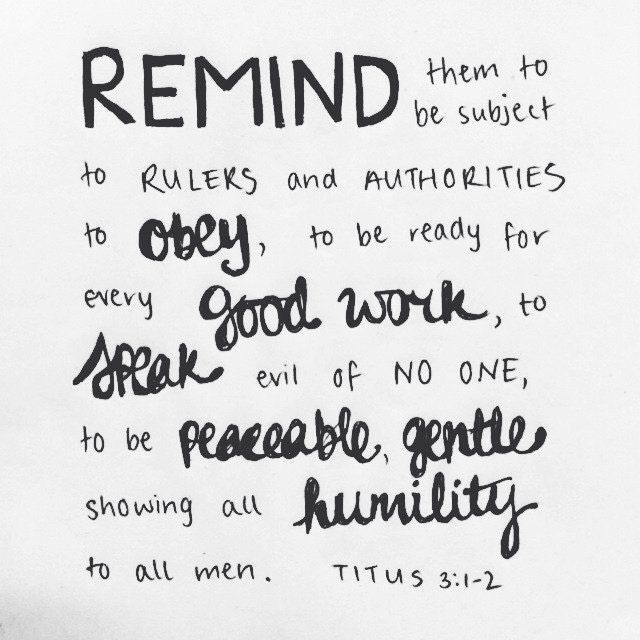 REMIND them to
be subject
to RULERS and AUTHORITIES
to obey, to be ready for
every good work, to
speak evil of NO ONE,
to be peaceable, gentle
showing all humility
to all men. TITUS 3:1-2